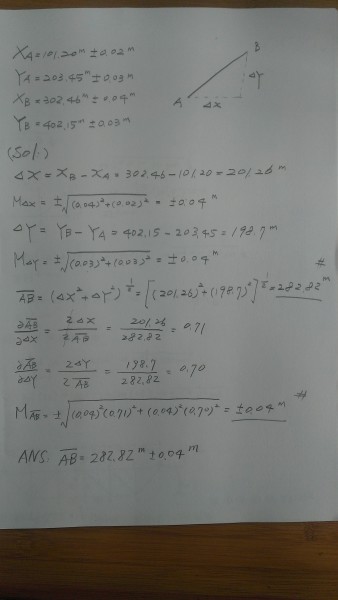 X_A = 101.20ᵐ ± 0.02ᵐ
Y_A = 203.45ᵐ ± 0.03ᵐ
X_B = 302.46ᵐ ± 0.04ᵐ
Y_B = 402.15ᵐ ± 0.03ᵐ
B
ΔY
A
ΔX
(Sol.)
ΔX = X_B - X_A = 302.46 - 101.20 = 201.26ᵐ
M_ΔX = ±√((0.04)² + (0.02)²) = ±0.04ᵐ
ΔY = Y_B - Y_A = 402.15 - 203.45 = 198.7ᵐ
M_ΔY = ±√((0.03)² + (0.03)²) = ±0.04ᵐ
A̅B̅ = (ΔX² + ΔY²)^½ = [(201.26)² + (198.7)²]^½ = 282.82ᵐ #
∂A̅B̅/∂ΔX = 2ΔX/2A̅B̅ = 201.26/282.82 = 0.71
∂A̅B̅/∂ΔY = 2ΔY/2A̅B̅ = 198.7/282.82 = 0.70
M_A̅B̅ = ±√((0.04)²(0.71)² + (0.04)²(0.70)²) = ±0.04ᵐ #
ANS: A̅B̅ = 282.82ᵐ ± 0.04ᵐ